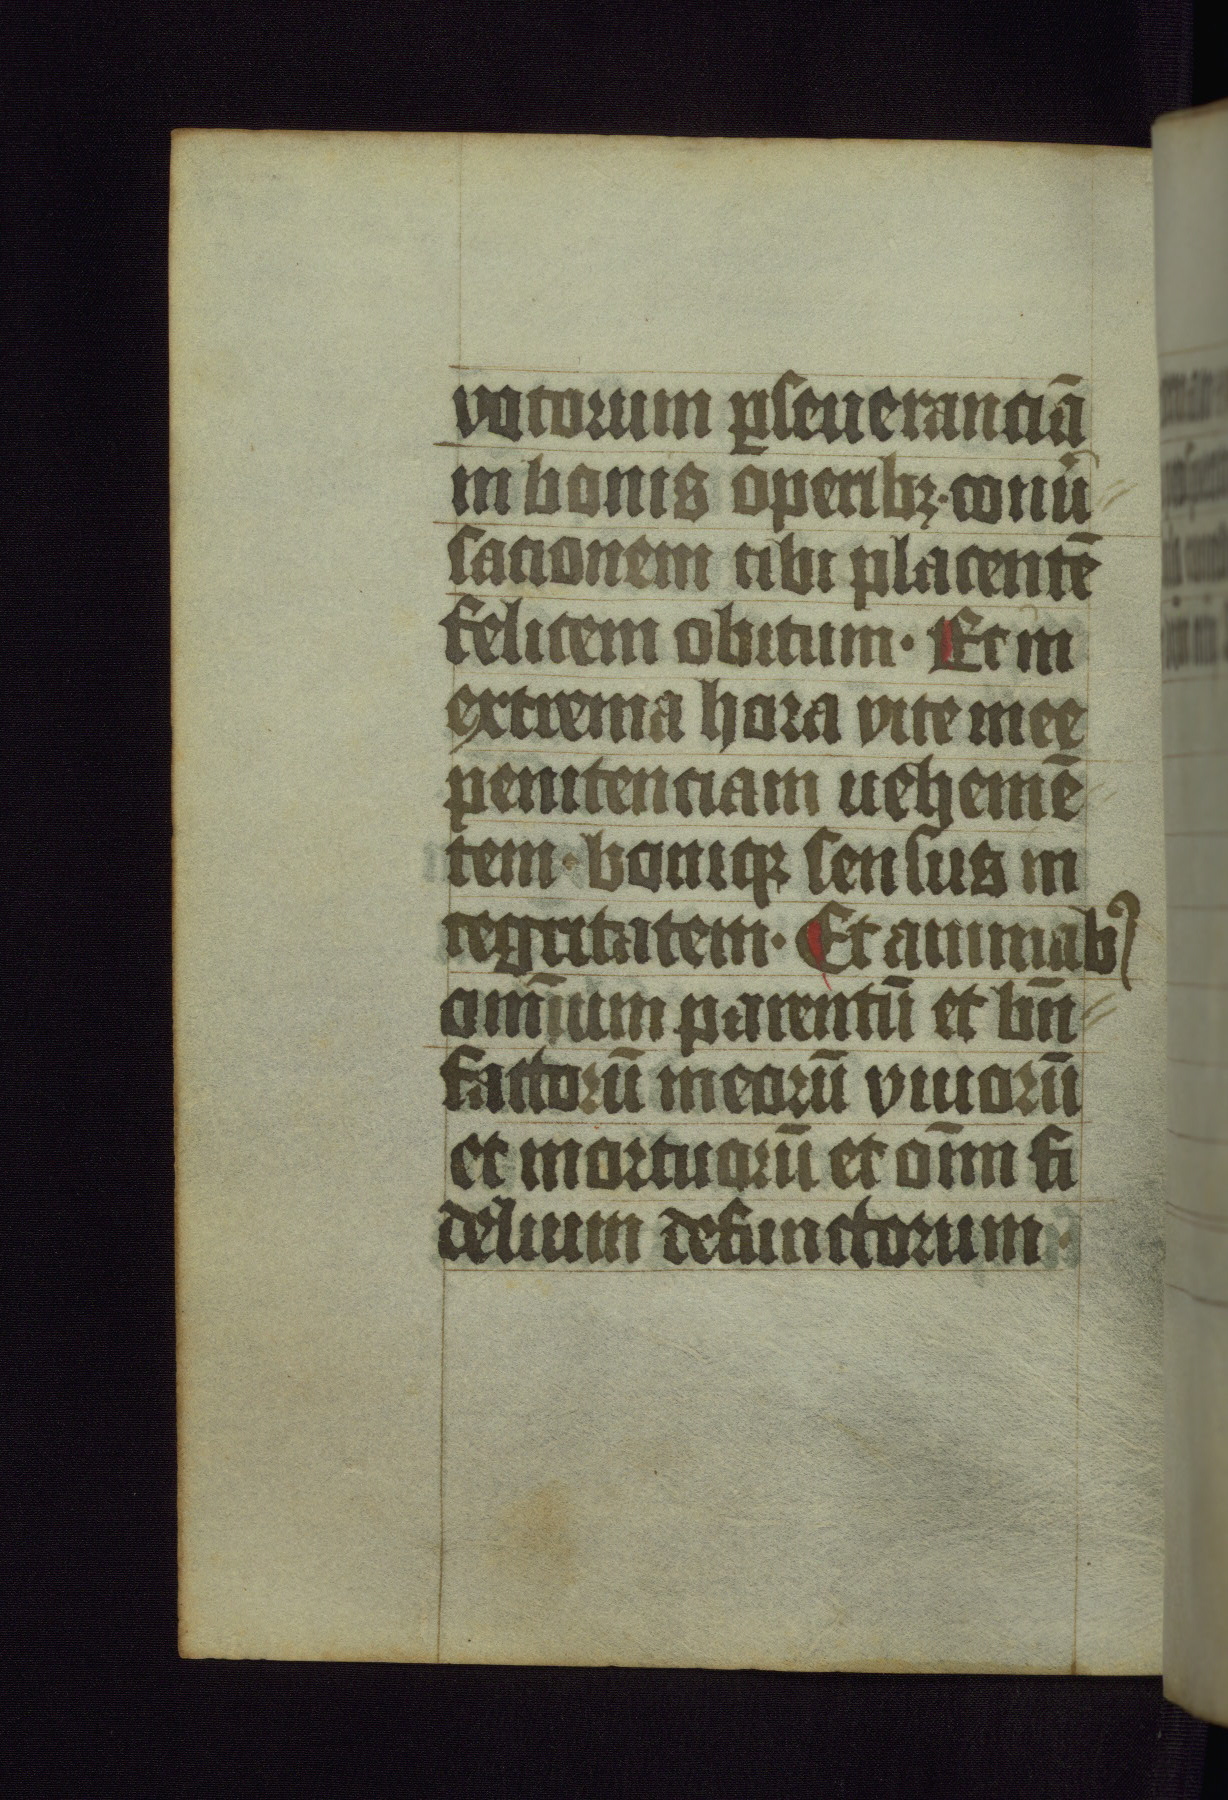 votorum ꝑseueranciā
in bonis operibꝫ · conu̓
sacionem tibi placentē
felicem obitum · Et in
extrema hora vite mee
penitenciam uehemē
tem · boniqꝫ sensus in
tegritatem · Et animabꝰ
om̄ium parentū et bn̄
factorū meorū viuorū
et mortuorū et om̄n fi
delium defunctorum ·